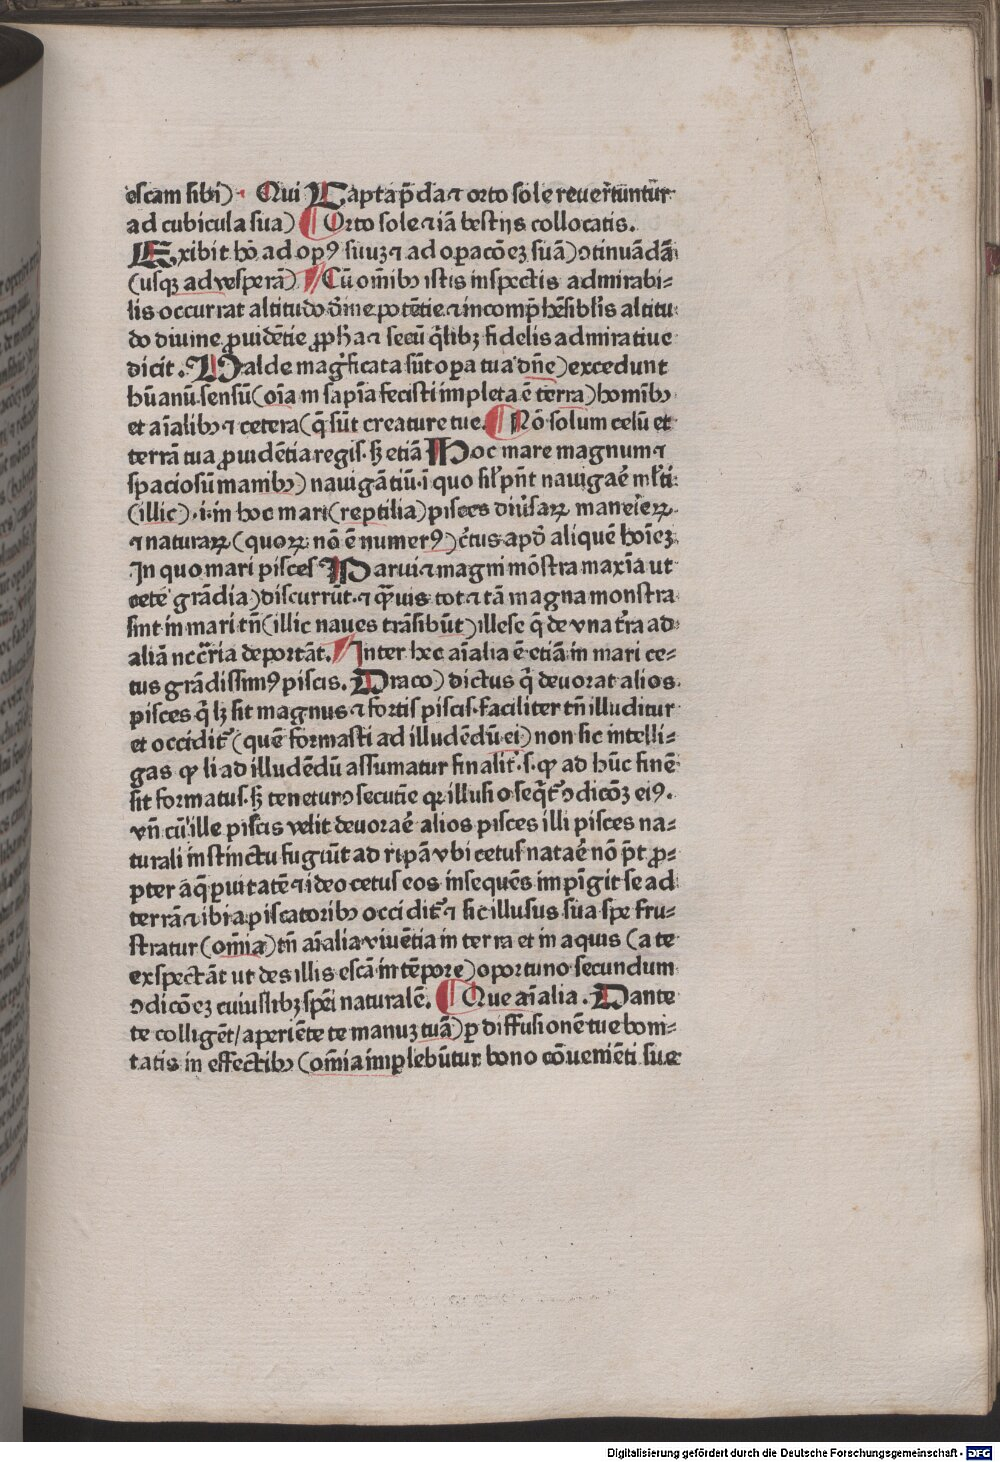 escam sibi) · Qui Capta p̄da ⁊ orto sole reuertuntur
ad cubicula sua) ¶ Orto sole ⁊ iā bestijs collocatis.
Exibit hō ad opꝰ suuꝫ ⁊ ad oꝑacōeꝫ suā) ↄtinuādā
(usqꝫ ad vesperā) ¶ Cū om̄ibꝰ istis inspectis admirabi-
lis occurrat altitudo diuine potētie ⁊ incomp̄hēsiblis altitu
do diuine ꝓuidētie ꝓph̄a ⁊ secū q̄libꝫ fidelis admiratiue
dicit. Valde maḡficata sūt oꝑa tua dn̄e) excedunt
hūanū sensū (oīa in sapīa fecisti impleta ē terra) hoīnibꝰ
et aīalibꝰ ⁊ cetera (q̄ sūt creature tue. ¶ Nō solum celū et
terrā tua ꝓuidētia regis. sꝫ etiā Hoc mare magnum ⁊
spaciosū manibꝰ) nauigātiū. ī quo sil̄ pn̄t nauigaē ml̄ti
(illic) .i. in hoc mari (reptilia) pisces diūsaꝝ maneieꝝ
⁊ naturaꝝ (quoꝝ nō ē numerꝰ) c̄tus apd̄ aliquē hoīeꝫ
In quo mari pisces Parui ⁊ magni mōstra maxīa ut
cete grādia) discurrūt. ⁊ q̄uis tot ⁊ tā magna monstra
sint in mari tn̄ (illic naues trāsibūt) illese q̄ de vna tr̄a ad
aliā nccr̄ia deportāt. ¶ Inter hec aīalia ē etiā in mari ce-
tus grādissimꝰ piscis. Draco) dictus q̄ deuorat alios
pisces q̄ lꝫ sit magnus ⁊ fortis piscis. faciliter tn̄ illuditur
et occidit̄ (quē formasti ad illudēdū ei) non sic intelli-
gas ꝙ li ad illudēdū assumatur finalit̄ .s. ꝙ ad hūc finē
sit formatus. sꝫ tenetur ↄsecutie qꝛ illusio seq̄t̄ ↄdicōꝫ eiꝰ.
vn̄ cū ille piscis velit deuoraē alios pisces illi pisces na-
turali instinctu fugiūt ad ripā vbi cetus nataē nō p̄t ꝓ-
pter aq̄ ꝑuitatē ⁊ ideo cetus eos insequēs impīgit se ad
terrā ⁊ ibi a piscatoribꝰ occidit̄ ⁊ sic illusus sua spe fru-
stratur (om̄ia) tn̄ aīalia viuētia in terra et in aquis (a te
exspectāt ut des illis escā in tēpore) oportuno secundum
ↄdicōeꝫ cuiuslibꝫ spēi naturalē. ¶ Que aīalia. Dante
te colligēt / aperiēte te manuꝫ tuā) ꝑ diffusionē tue boni-
tatis in effectibꝰ (om̄ia implebūtur bono cōuenīēti sue